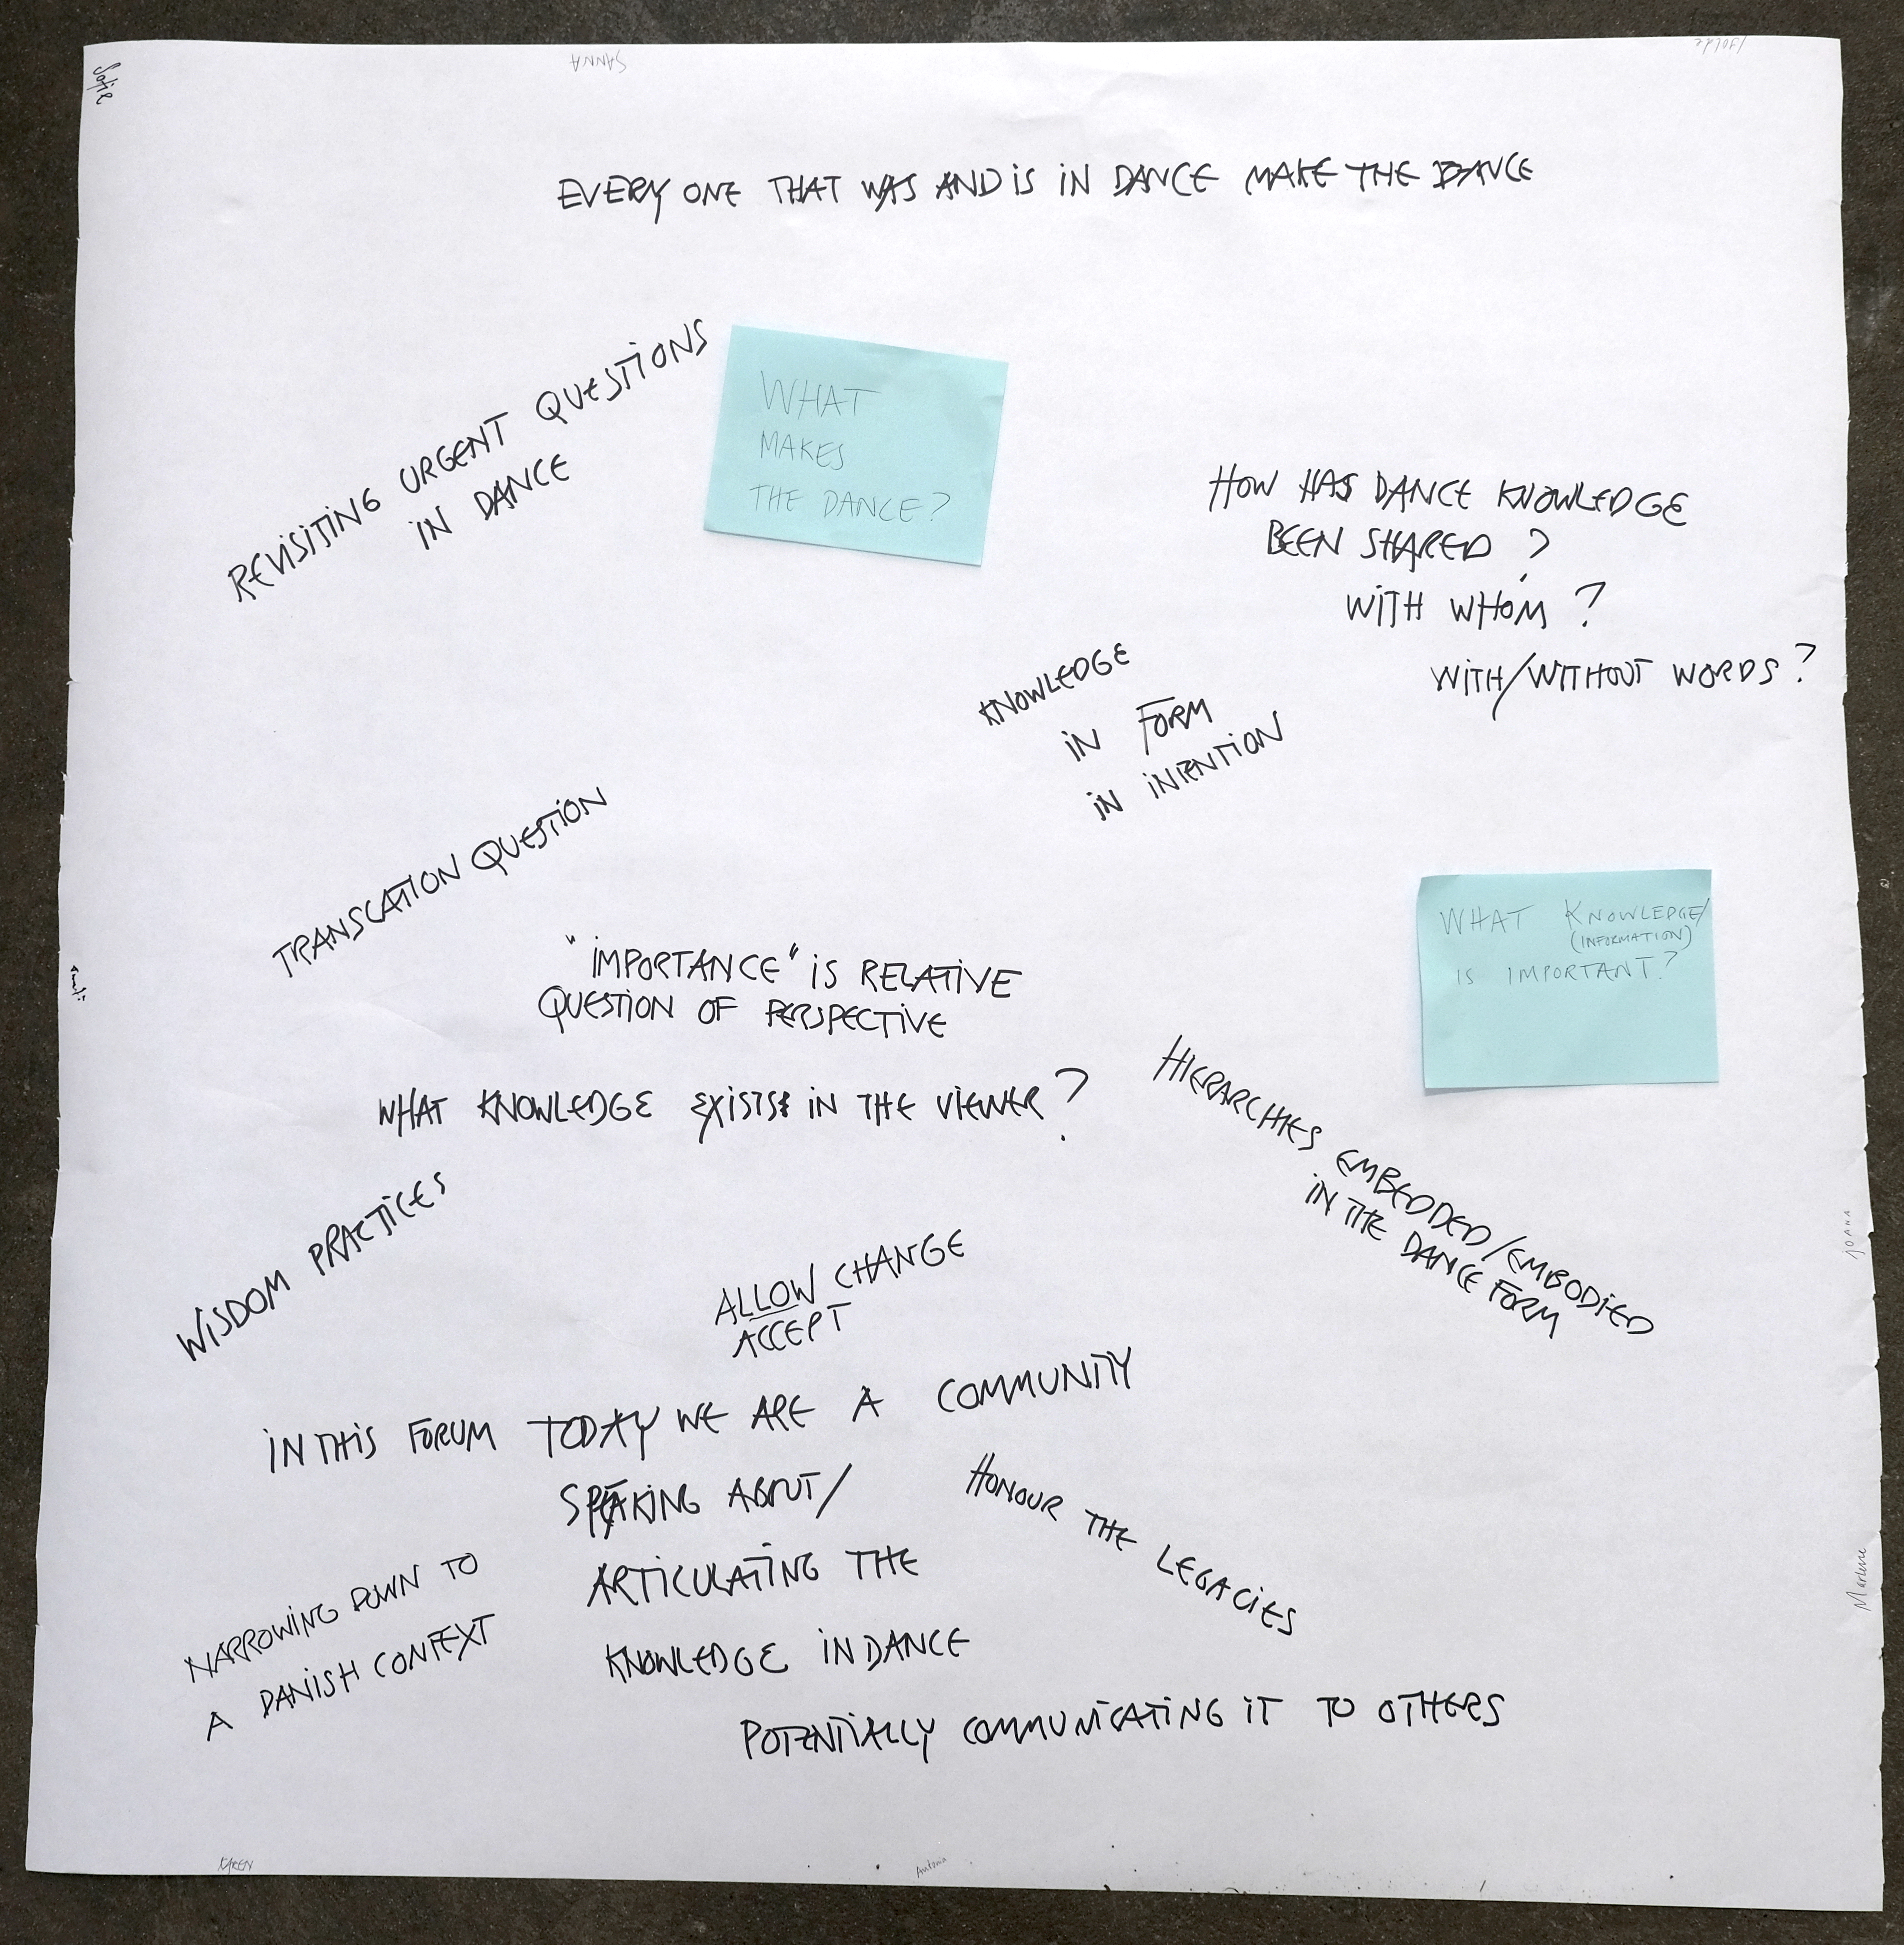 Sofie
SANNA
EVERY ONE THAT WAS AND IS IN DANCE MAKE THE DANCE
REVISITING URGENT QUESTIONS
IN DANCE
WHAT
MAKES
THE DANCE?
HOW HAS DANCE KNOWLEDGE
BEEN SHARED?
WITH WHOM?
WITH/WITHOUT WORDS?
KNOWLEDGE
IN FORM
IN INTENTION
TRANSLATION QUESTION
"IMPORTANCE" IS RELATIVE
QUESTION OF PERSPECTIVE
WHAT KNOWLEDGE/
(INFORMATION)
IS IMPORTANT?
WHAT KNOWLEDGE EXISTS IN THE VIEWER?
HIERARCHIES EMBEDDED/EMBODIED
IN THE DANCE FORM
WISDOM PRACTICES
ALLOW CHANGE
ACCEPT
JOANA
IN THIS FORUM TODAY WE ARE A COMMUNITY
SPEAKING ABOUT/
ARTICULATING THE
KNOWLEDGE IN DANCE
POTENTIALLY COMMUNICATING IT TO OTHERS
HONOUR THE LEGACIES
NARROWING DOWN TO
A DANISH CONTEXT
Marlene
KAREN
Antonia